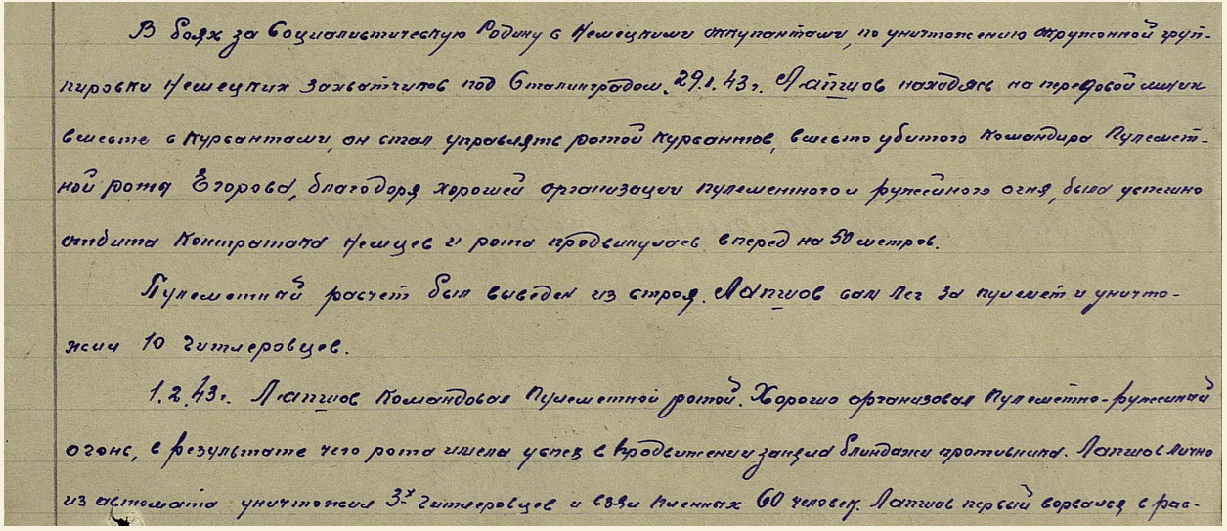 В боях за Социалистическую Родину с Немецкими оккупантами, по уничтожению окружонной груп-
пировки Немецких захватчиков под Сталинградом. 29.1.43г. Лапшов находясь на передовой линии
вместе с курсантами, он стал управлять ротой курсантов, вместо убитого командира Пулемет-
ной роты Егорова, благодоря хорошей организации пулеметного и ружейного огня, была успешно
отбита Контратака Немцев и рота продвинулась вперед на 50 метров.
Пулеметный расчет был выведен из строя. Лапшов сам лег за пулемет и уничто-
жил 10 Гитлеровцев.
1.2.43г. Лапшов Командовал Пулеметной ротой. Хорошо организовал Пулеметно-ружейный
огонь, в результате чего рота имела успех в продвижении заняла блиндажи противника. Лапшов лично
из автомата уничтожил 3х Гитлеровцев и взял пленных 60 человек. Лапшов первый ворвался в рас-